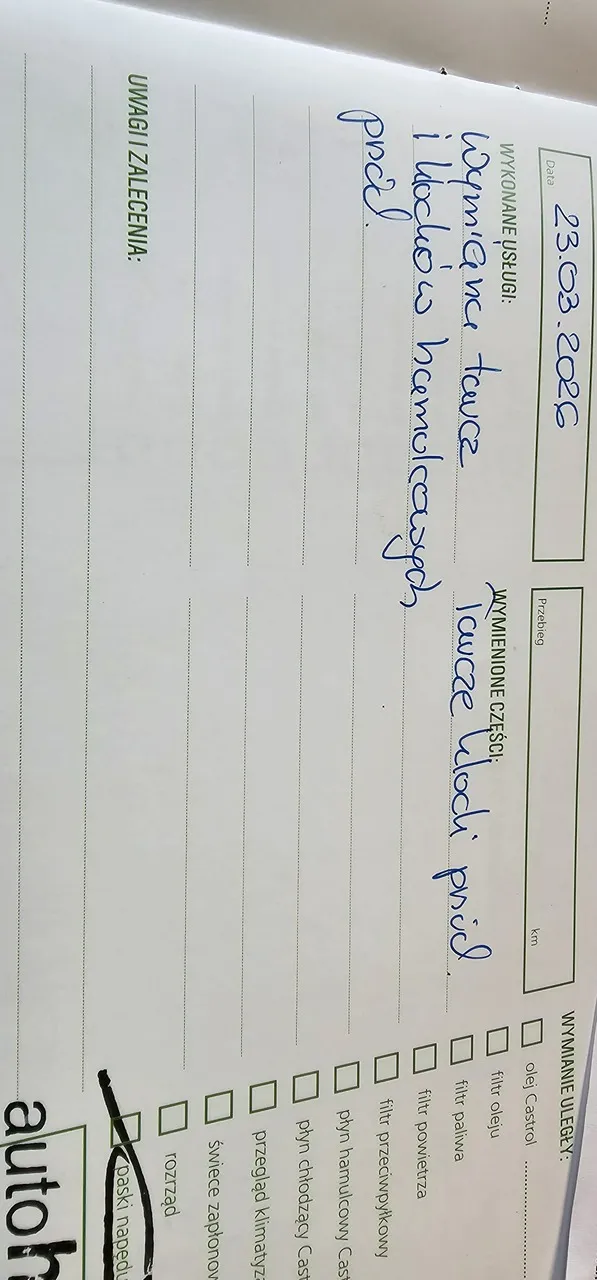 Data
23.03.2026
Przebieg
km
WYKONANE USŁUGI:
Wymiana tarcz
i klocków hamulcowych
przód.
WYMIENIONE CZĘŚCI:
Tarcze klocki przód.
WYMIANIE ULEGŁY:
olej Castrol
filtr oleju
filtr paliwa
filtr powietrza
filtr przeciwpyłkowy
płyn hamulcowy Cast
płyn chłodzący Cast
przegląd klimatyza
świece zapłonow
rozrząd
paski napędu
UWAGI I ZALECENIA:
autoh